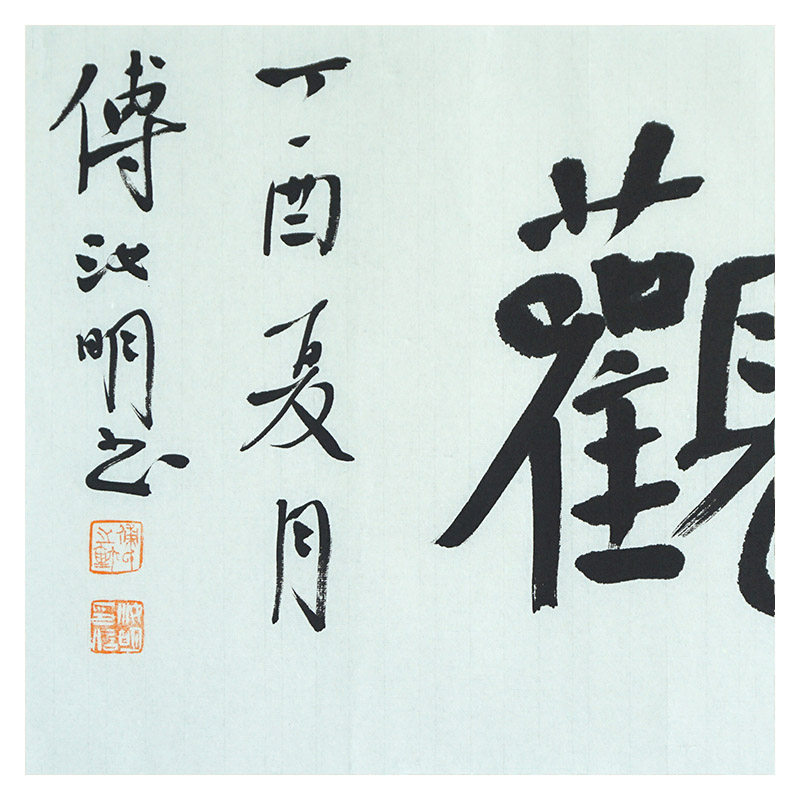 觀
丁酉夏月
傅汝明书